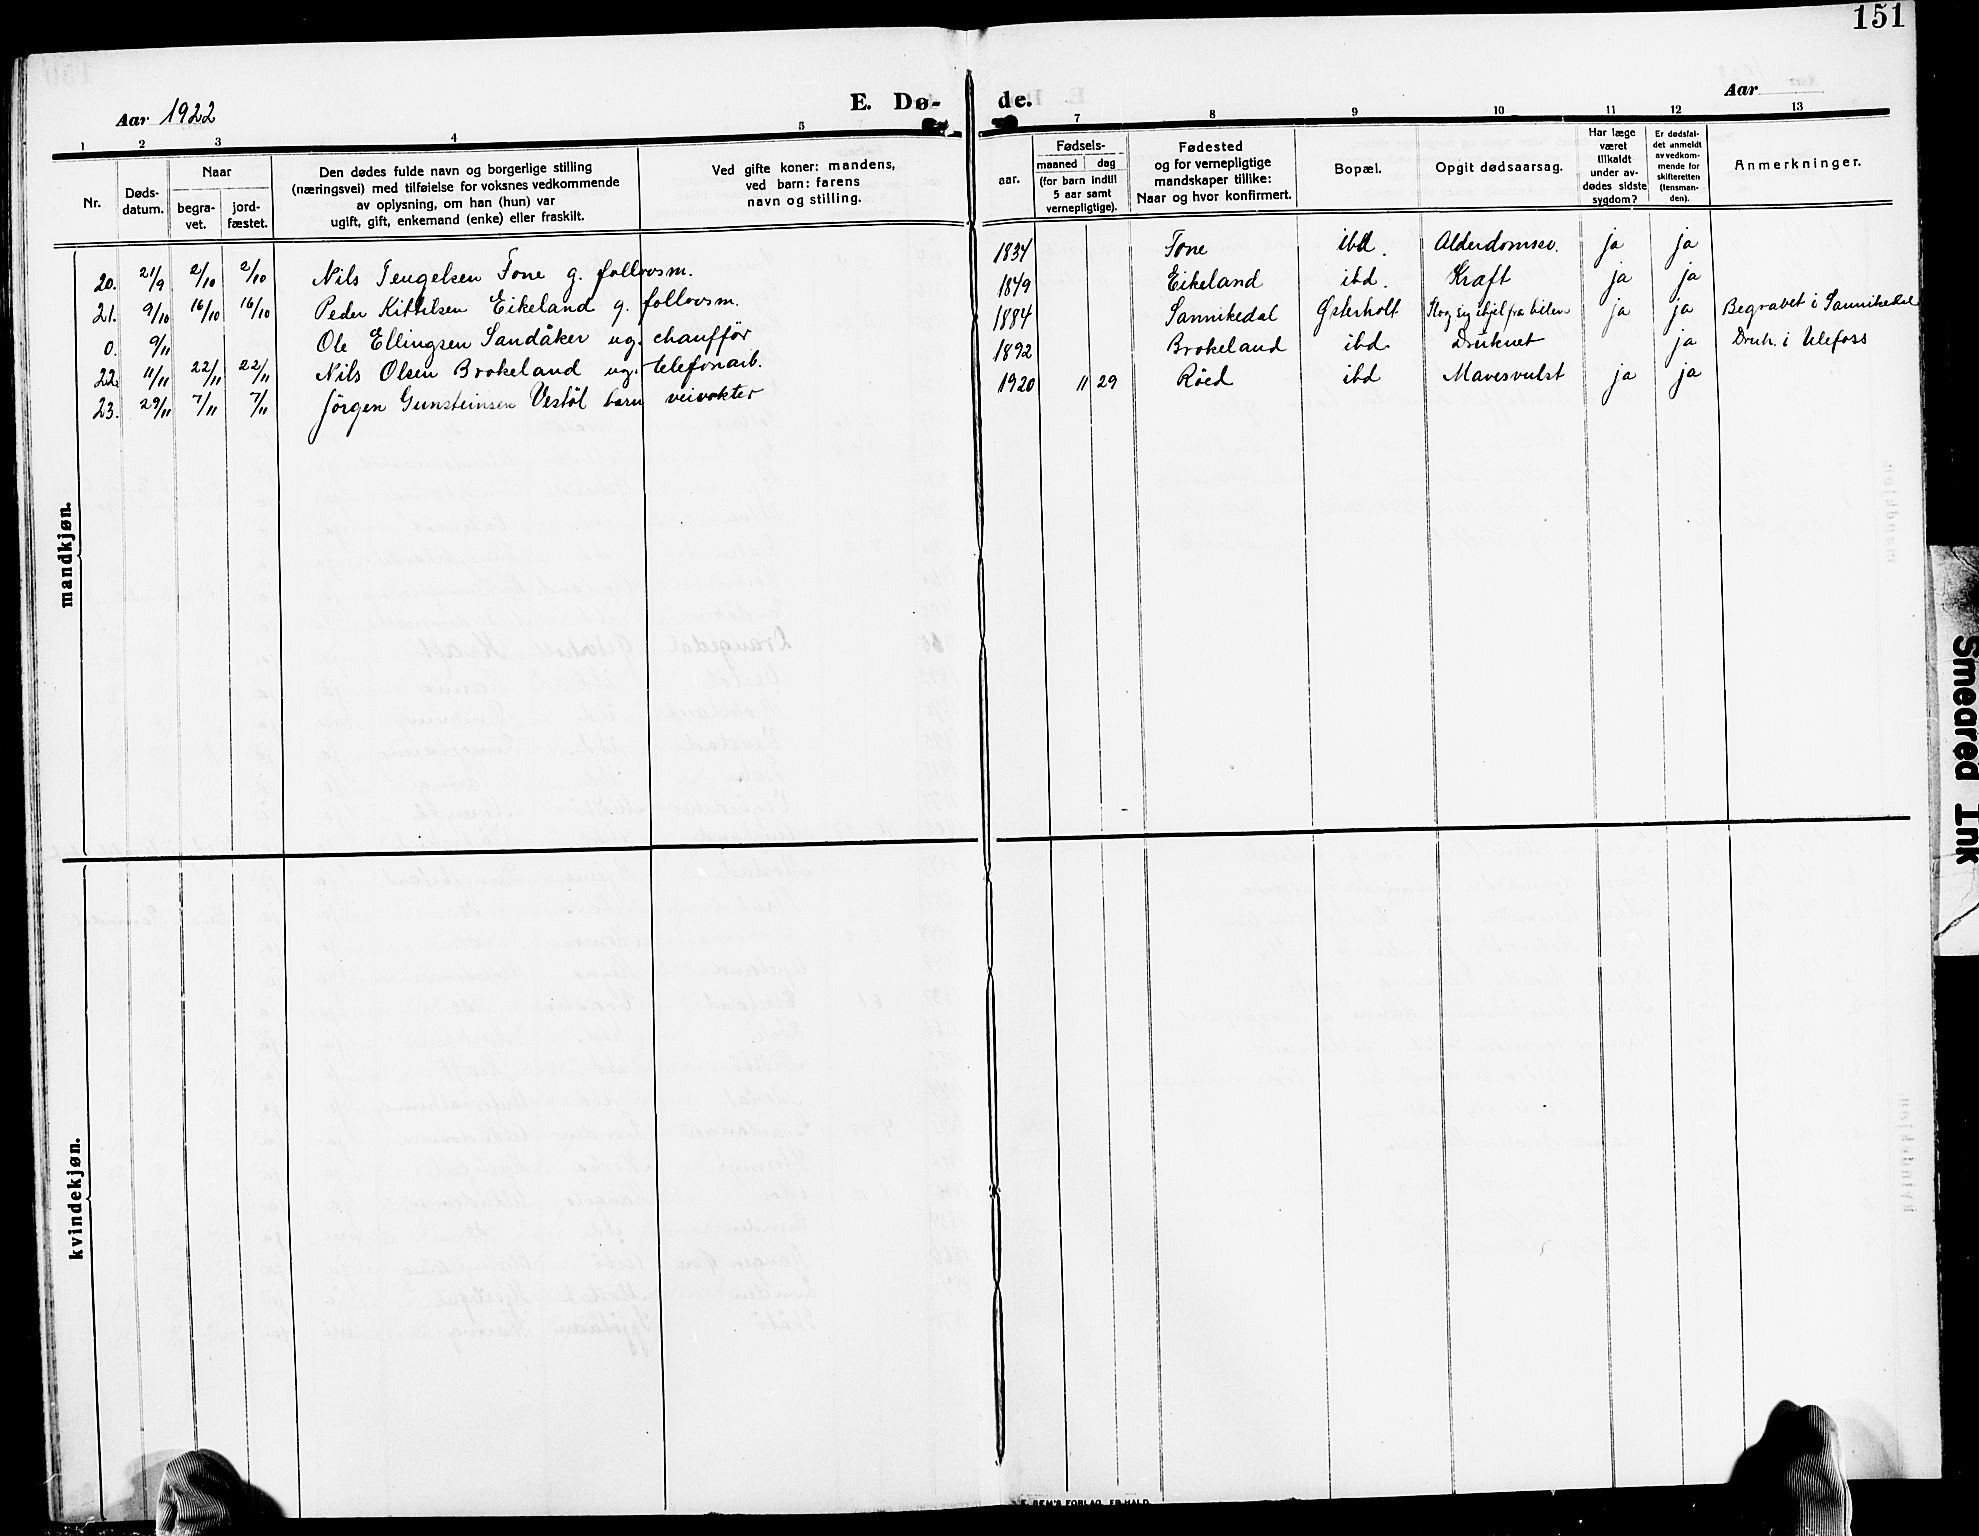 151
Aar 1922
E. Dø-
de.
Aar
1 2 3 4 5 7 8 9 10 11 12 13
Nr.
Døds-
datum.
Naar
begra-
vet.
jord-
fæstet.
Den dødes fulde navn og borgerlige stilling
(næringsvei) med tilføielse for voksnes vedkommende
av oplysning, om han (hun) var
ugift, gift, enkemand (enke) eller fraskilt.
Ved gifte koner: mandens,
ved barn: farens
navn og stilling.
aar.
Fødsels-
maaned dag
(for barn indtil
5 aar samt
vernepligtige).
Fødested
og for vernepligtige
mandskaper tillike:
Naar og hvor konfirmert.
Bopæl.
Opgit dødsaarsag.
Har læge
været
tilkaldt
under av-
dødes sidste
sygdom?
Er dødsfal-
det anmeldt
av vedkom-
mende for
skifteretten
(lensman-
den).
Anmerkninger.
20. 21/9 2/10 2/10 Nils Tengelsen Tone g. follovsm. 1834 Tone ibd. Alderdomssv. ja ja
21. 9/10 16/10 16/10 Peder Kittilsen Eikeland g. follovsm. 1849 Eikeland ibd. Kraft ja ja
0. 9/11 Ole Ellingsen Sandåker ug. chaufför 1884 Sannikedal Østerholt Slog sig ihjel fra bilen ja ja Begravet i Sannikedal
22. 11/11 22/11 22/11 Nils Olsen Brokeland ug. telefonarb. 1892 Brokeland ibd. Druknet ja Druk. i Ulefoss
23. 29/11 7/11 7/11 Jörgen Gunsteinsen Vestöl barn veivokter 1920 11 29 Röed ibd Mavesvulst ja ja
mandkjøn.
kvindekjøn.
Smeared Ink